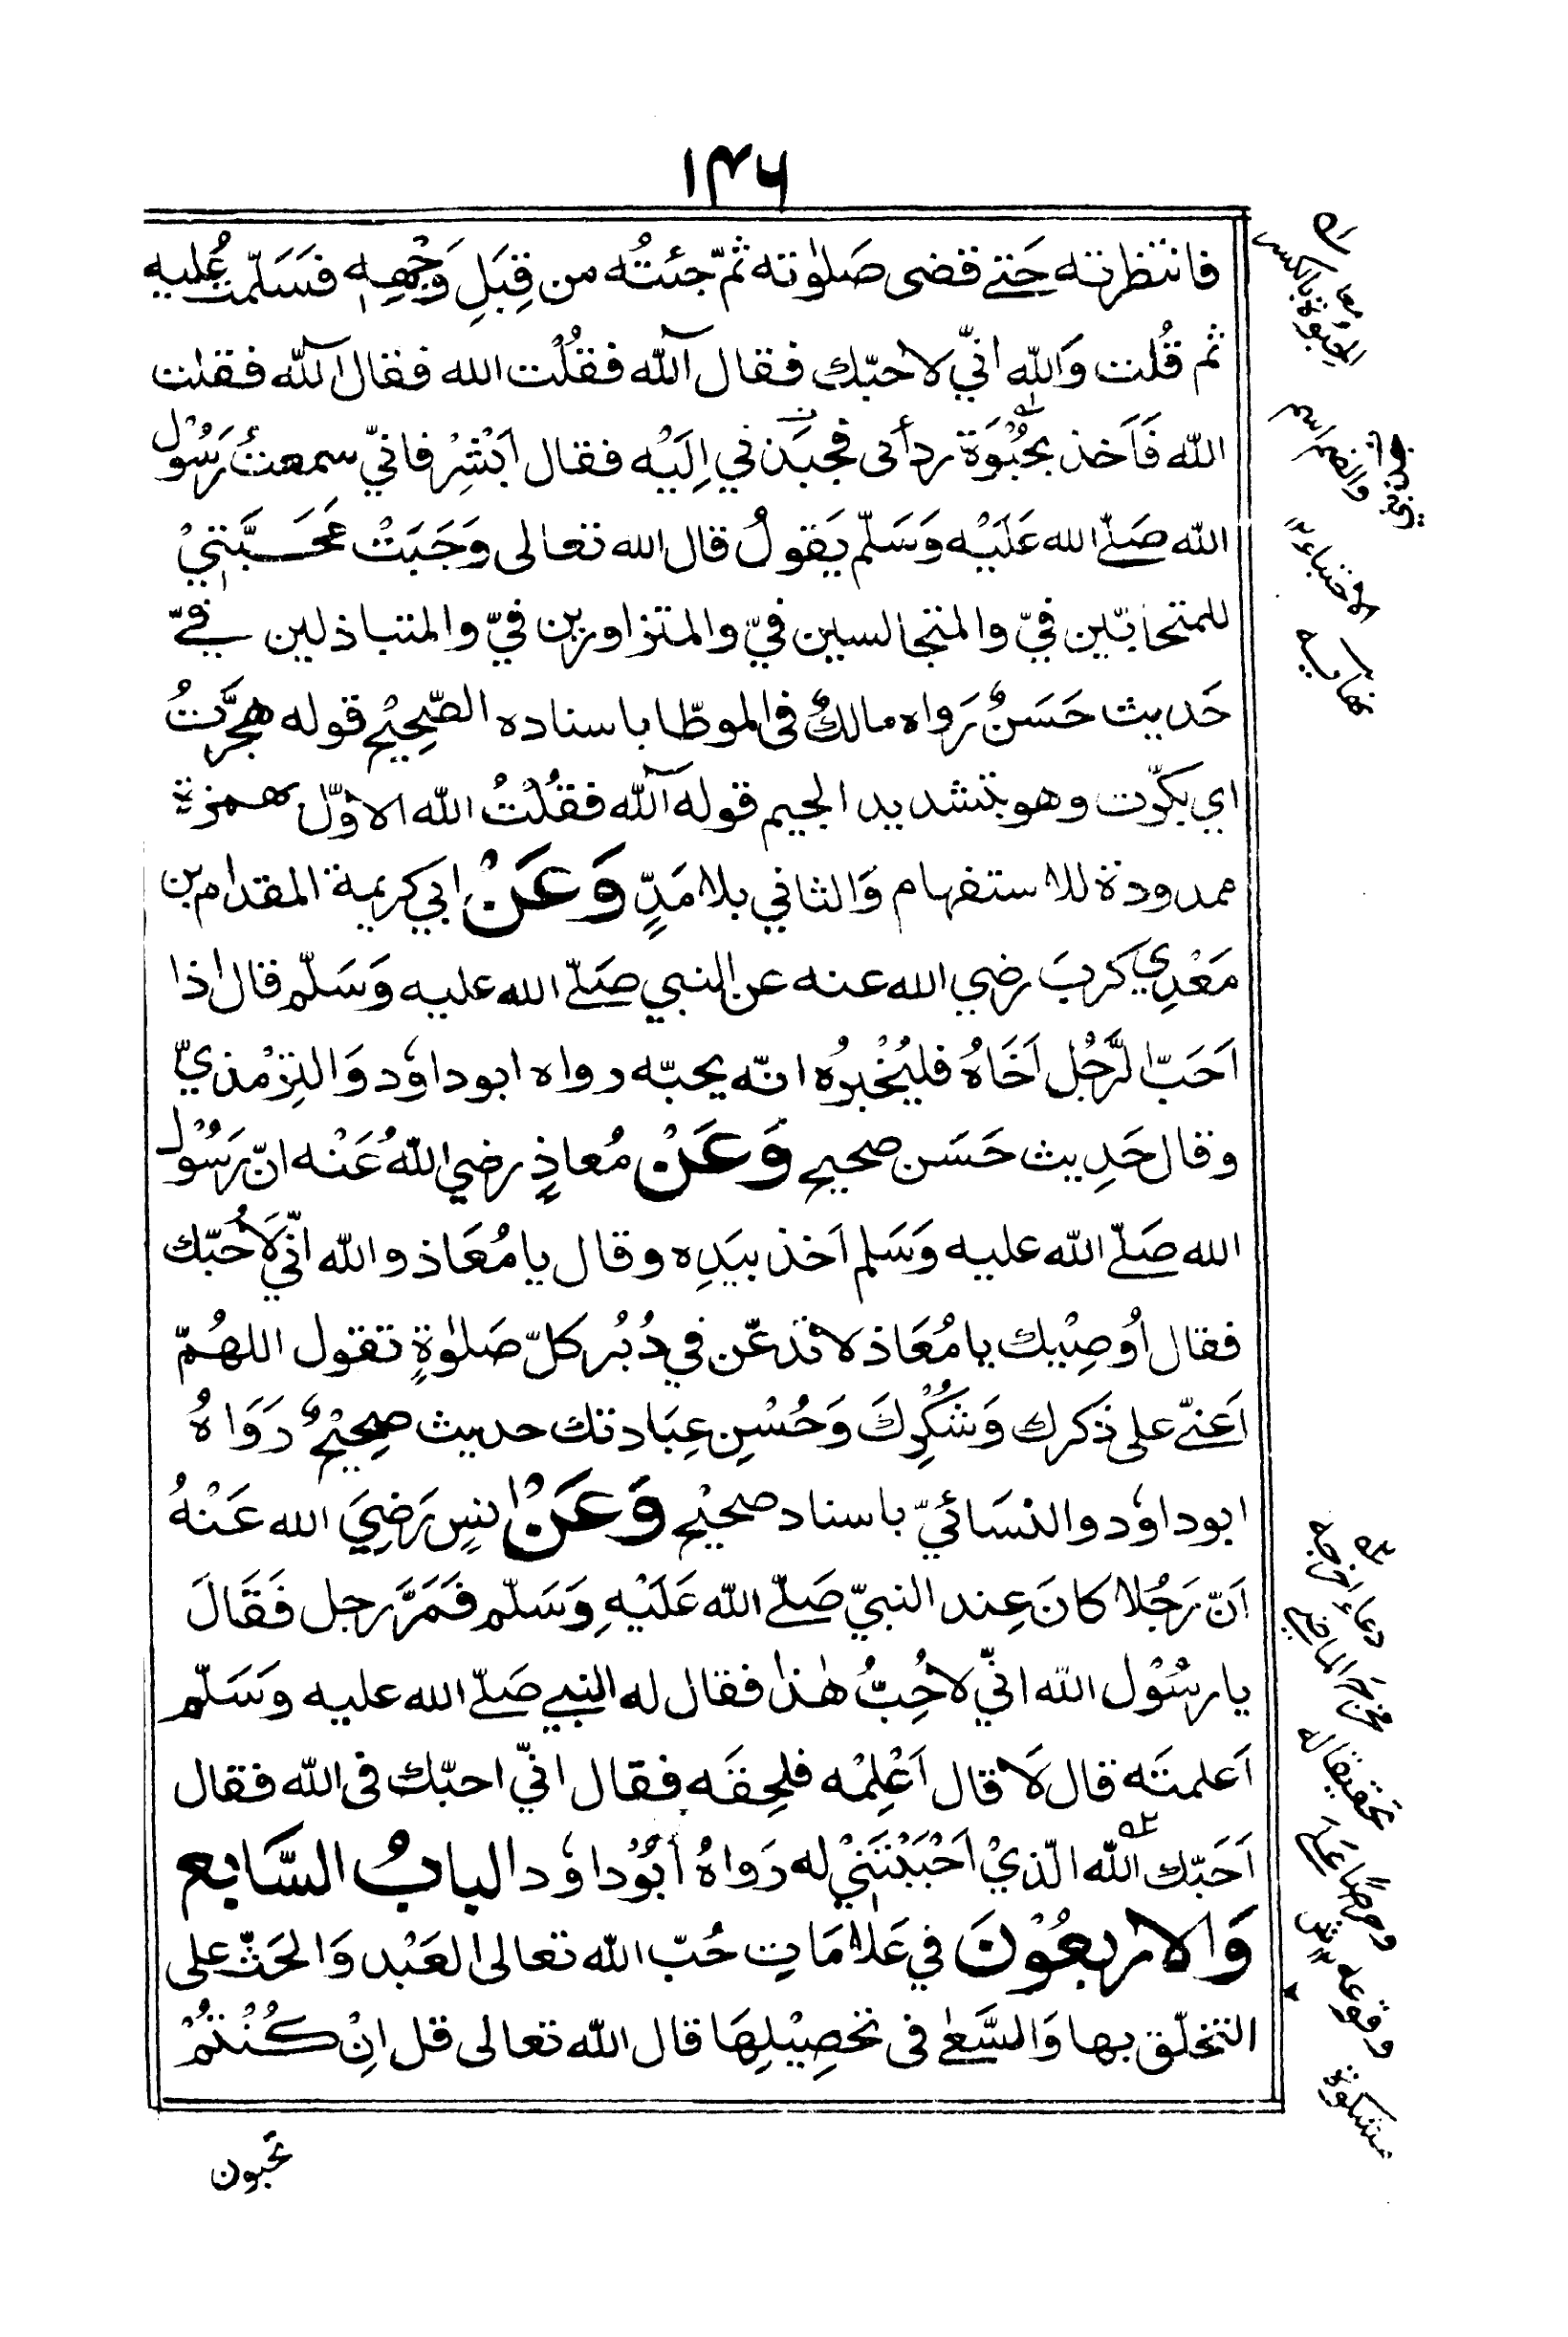 ۱۴۶
فانتظرته حَتے قضى صَلوٰته ثمّ جئتُه من قِبَلِ وَجْهِهٖ فسَلّمت عُليه
ثم قُلت وَالله انّي لاحبّك فقال آلله فقُلْت الله فقال آلله فقلت
الله فَاَخذ بحُبْوَة ردأى فجبَذني اِلَيْه فقال اَبْشِرْ فانيّ سمعتُ رَسُوْل
الله صَلّے الله عَلَيْه وَسَلّم يَقولُ قال الله تعالى وَجَبَتْ مَحَبَّتِيْ
للمتحابّين فيّ والمتجالسين فيّ والمتزاورين فيّ والمتباذلين فےّ
حَديث حَسَنٌ رَواه مالكٌ فى الموطّا باسناده الصّحِيْح قوله هجَّرتُ
اي بكّرت وهو بتشديد الجيم قوله آلله فقُلْتُ الله الاوّل بهمزة
ممدودة للاستفهام وَالثاني بلا مَدٍّ وَعَنْ ابي كريمة المقدام بن
مَعْدِي كربَ رضي الله عنه عن النبي صَلّے الله عليه وَسَلّم قال اذا
اَحَبّ الرَّجُل اَخَاهُ فليُخْبرُه انّه يحبّه رواه ابوداوٗد وَالتِرْمذيّ
وقال حَدِيث حَسَن صحيح وَعَنْ مُعاذٍ رضي اللهُ عَنْه انّ رَسُوْل
الله صَلّے الله عليه وَسَلم اَخذ بيَدِه وقال يا مُعَاذ والله انّي لَاُحبّك
فقال اُوصِيْك يا مُعَاذ لا تَدعّن في دُبُر كلّ صَلوٰةٍ تقول اللهُمّ
اَعنّے على ذكرك وَشُكْرِكَ وَحُسْنِ عِبَادتك حديث صحِيْحٌ رَوَاهُ
ابوداوٗد والنسَائيّ باسناد صحيْح وَعَنْ انسٍ رَضِيَ الله عَنْهُ
اَنّ رَجُلا كانَ عِند النبيّ صَلّے الله عَلَيْهِ وَسَلّم فَمَرَّ رجل فَقَالَ
يا رسُوْل الله انّي لاُحِبُّ هٰذا فقال له النبے صَلّے الله عليه وَسَلّم
اَعلمتَه قال لَا قال اَعْلِمْه فلحِقَه فقال انّي احبّك فى الله فقال
اَحَبّك الله الّذيْ اَحْبَبْتَنِيْ له رَواهُ اَبُوْداوٗد البابُ السَّابع
وَالاربعُوْنَ في عَلامَاتِ حُبّ الله تعالى العَبْد وَالحَثّ على
التخلّق بها وَالسَّعے فى تحْصِيْلِهَا قال الله تعالى قل اِنْ كُنْتُمْ
تحبون
الحبوة بالكسر
والضم اسم
الاحتباء
نهايه
دعاء اخرجه
مخرج الماضي
تحقيقا له
وحرصا على
وقوعه
مشكوة